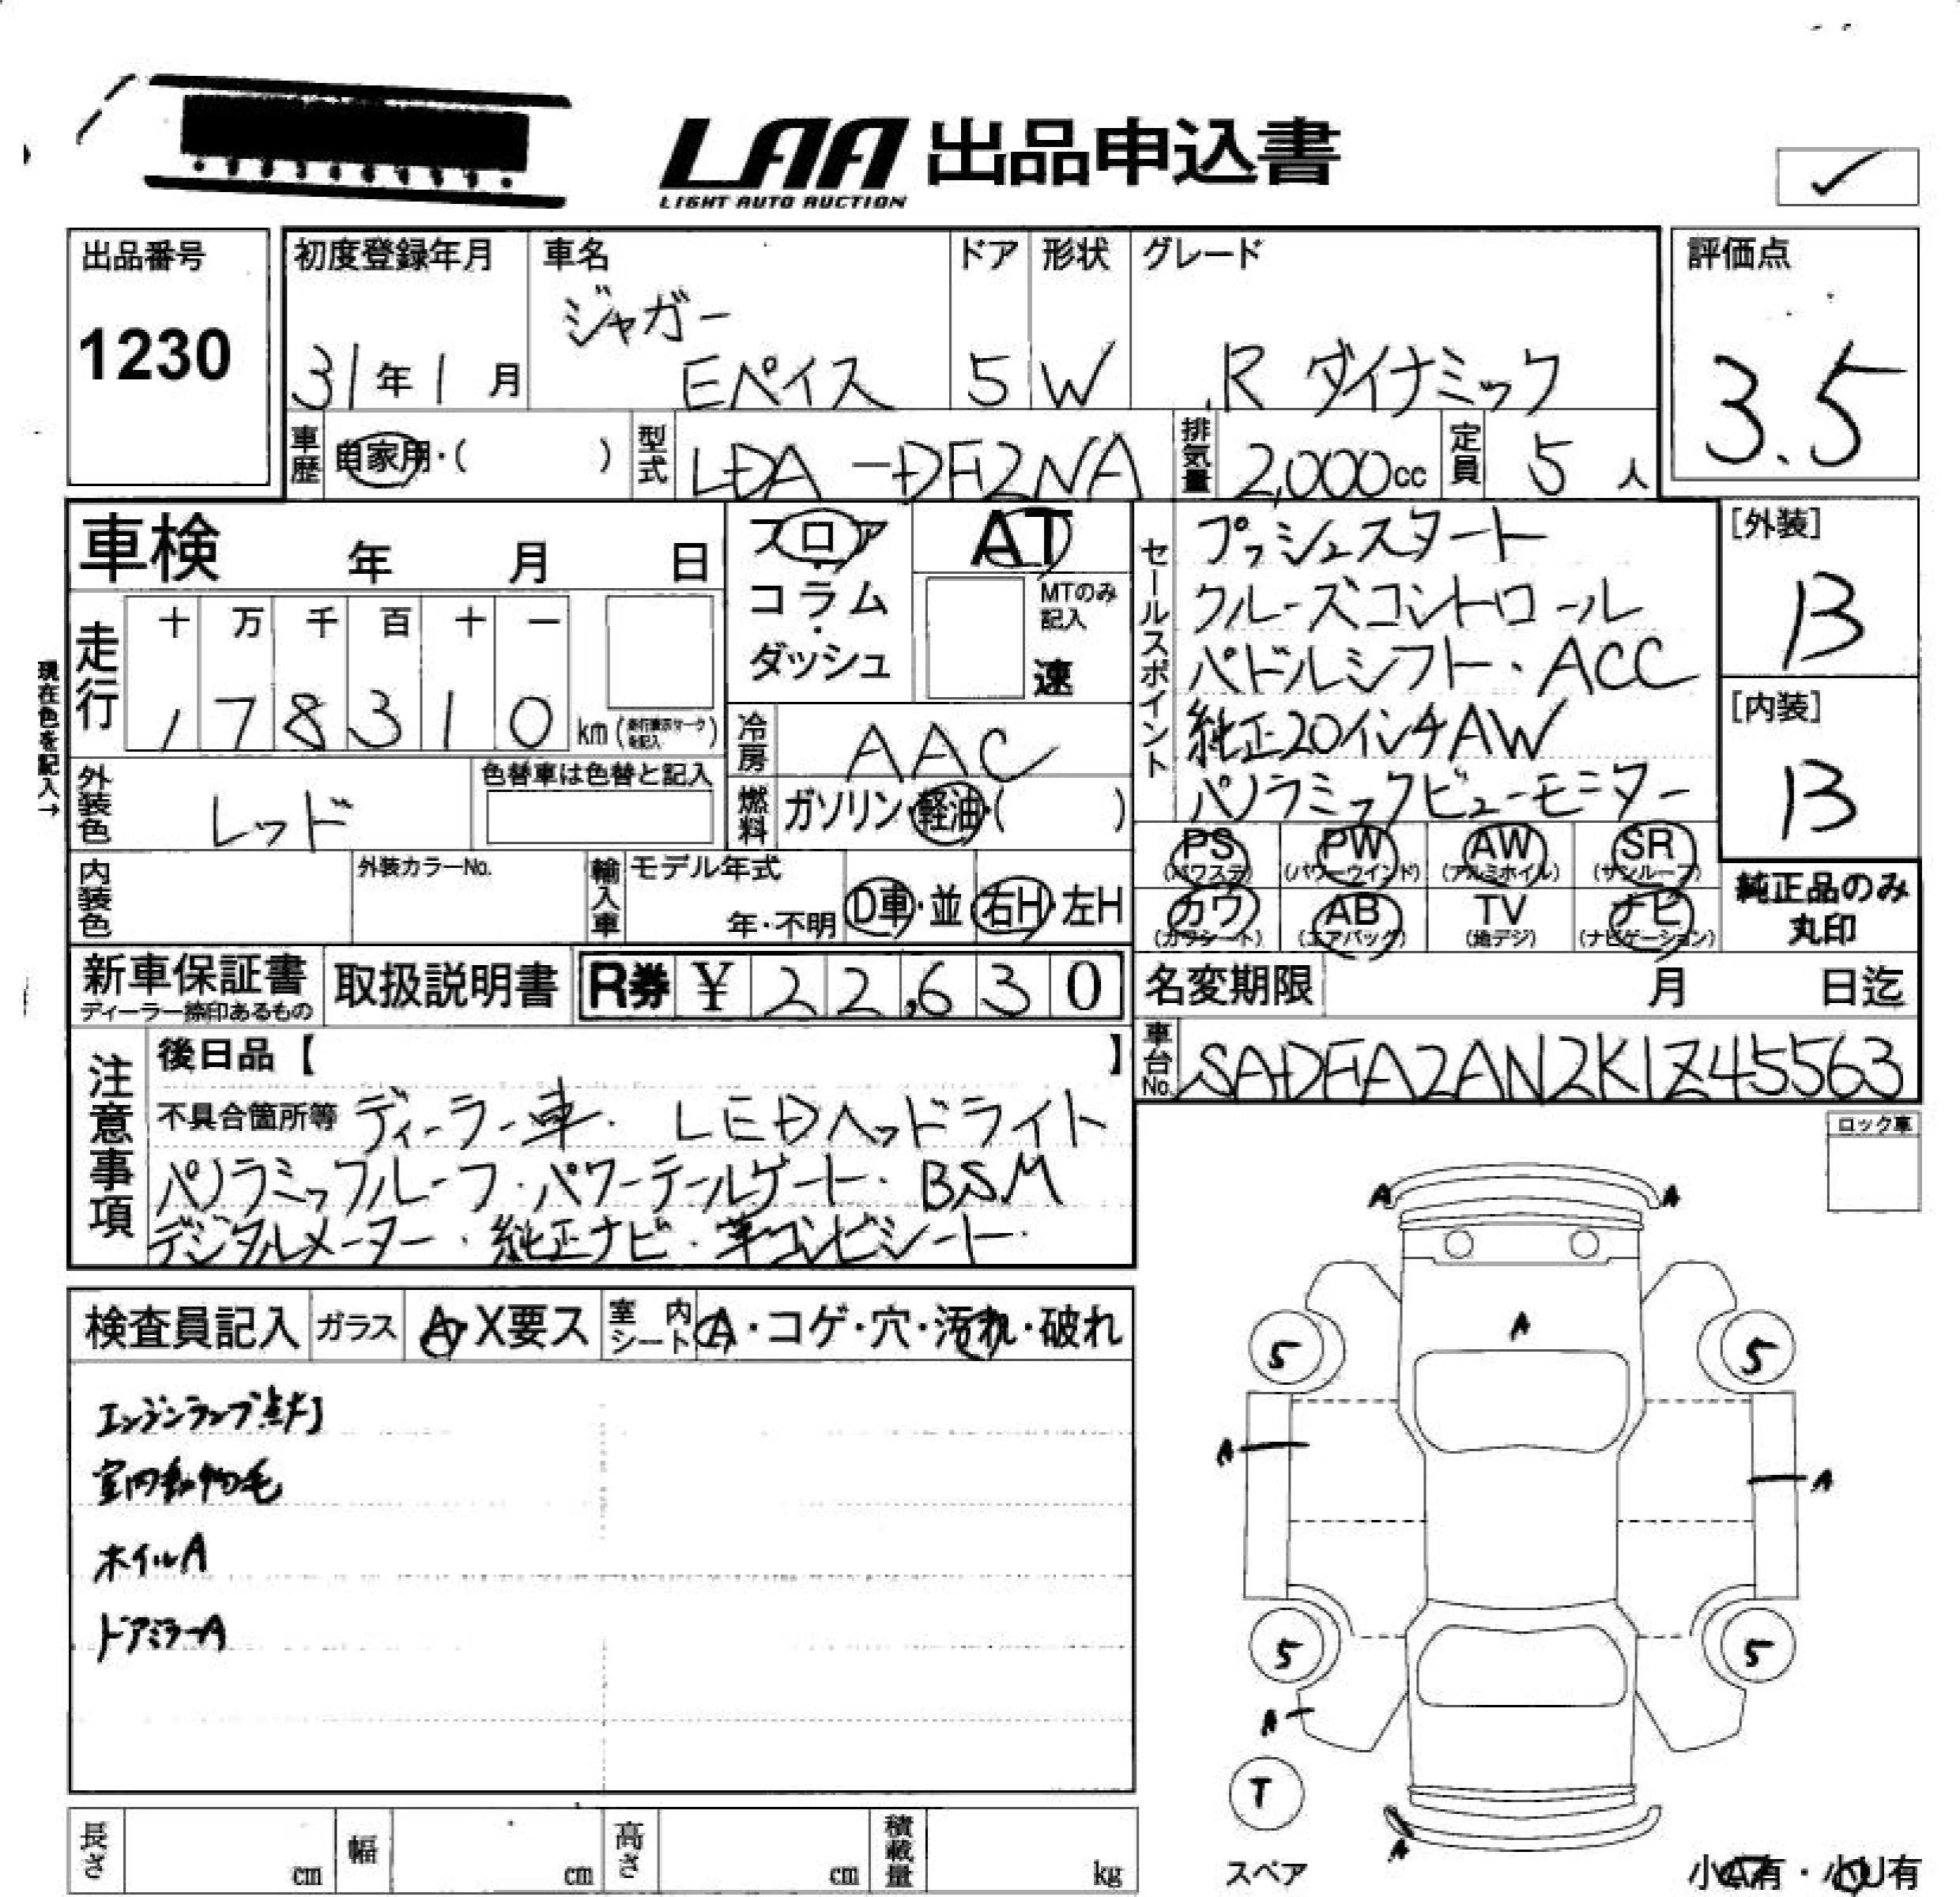 LAA 出品申込書
LIGHT AUTO AUCTION
✓
出品番号 初度登録年月 車名 ドア 形状 グレード 評価点
1230
ジャガー
31年1月 Eペイス 5 W R ダイナミック 3.5
車歴 自家用・( ) 型式 LDA-DF2NA 排気量 2,000cc 定員 5人
車検 年 月 日
フロア・コラム・ダッシュ
AT
MTのみ記入
速
セールスポイント
プッシュスタート
クルーズコントロール
パドルシフト・ACC
純正20インチAW
パノラミックビューモニター
[外装]
B
[内装]
B
現在色を記入→
走行 十 万 千 百 十 一
178310 km
冷房 AAC
外装色 レッド 色替車は色替と記入
燃料 ガソリン・軽油・( )
PS (パワステ) PW (パワーウインド) AW (アルミホイル) SR (サンルーフ)
カワ (カワシート) AB (エアバッグ) TV (地デジ) ナビ (ナビゲーション)
純正品のみ
丸印
内装色 外装カラーNo. 輸入車 モデル年式 年・不明 D車・並 右H・左H
新車保証書 ディーラー捺印あるもの 取扱説明書 R券 ¥ 22,630
名変期限 月 日迄
車台No. SADFA2AN2K1Z45563
注意事項
後日品【 】
不具合箇所等 ディーラー車・LEDヘッドライト
パノラミックルーフ・パワーテールゲート・BSM
デジタルメーター・純正ナビ・革コンビシート
ロック車
検査員記入 ガラス A・X要ス 室内シート A・コゲ・穴・汚れ・破れ
エンジンランプ点灯
室内動物毛
ホイルA
ドアミラーA
A A
A
5 5
A A
5 5
A
T
A
スペア
小A有・小U有
長さ cm 幅 cm 高さ cm 積載量 kg